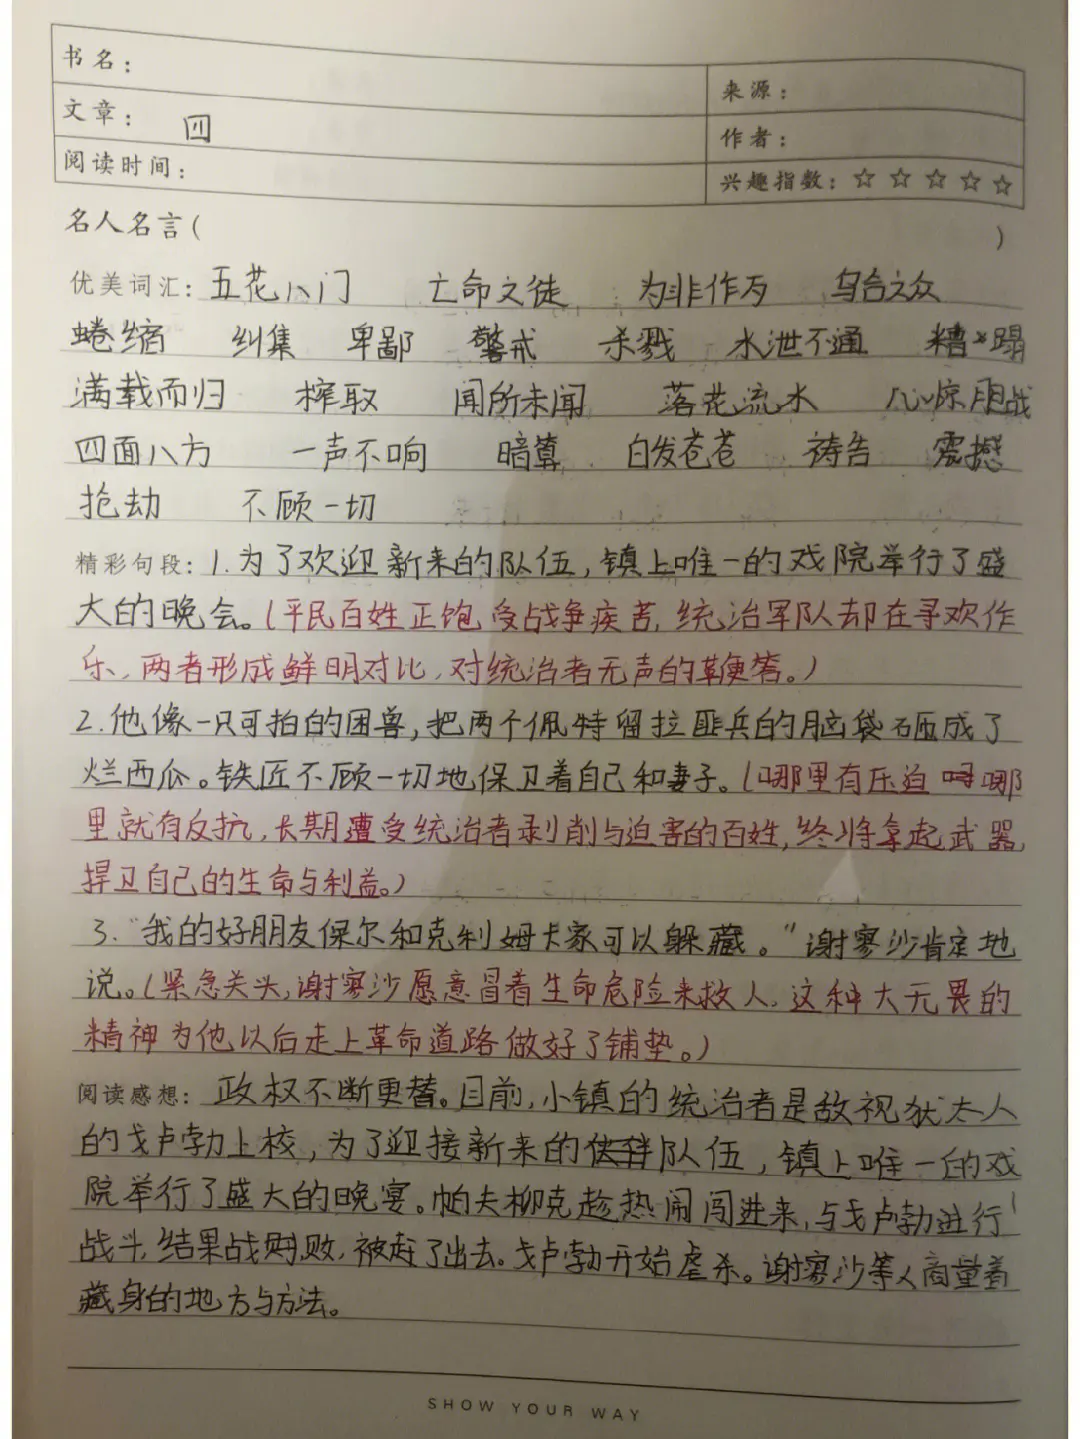 书名：
来源：
文章： 四
作者：
阅读时间：
兴趣指数：☆ ☆ ☆ ☆ ☆
名人名言（ ）
优美词汇：五花八门 亡命之徒 为非作歹 乌合之众
蜷缩 纠集 卑鄙 警戒 杀戮 水泄不通 糟蹋
满载而归 榨取 闻所未闻 落花流水 心惊胆战
四面八方 一声不响 暗算 白发苍苍 祷告 震撼
抢劫 不顾一切
精彩句段：1.为了欢迎新来的队伍，镇上唯一的戏院举行了盛
大的晚会。(平民百姓正饱受战争疾苦，统治军队却在寻欢作
乐，两者形成鲜明对比，对统治者无声的鞭笞。)
2.他像一只可拍的困兽，把两个佩特留拉匪兵的脑袋砸成了
烂西瓜。铁匠不顾一切地保卫着自己和妻子。(哪里有压迫 哪
里就有反抗，长期遭受统治者剥削与迫害的百姓，终将拿起武器，
捍卫自己的生命与利益。)
3.“我的好朋友保尔和克利姆卡家可以躲藏。”谢寥沙肯定地
说。(紧急关头，谢寥沙愿意冒着生命危险来救人，这种大无畏的
精神为他以后走上革命道路做好了铺垫。)
阅读感想：政权不断更替。目前，小镇的统治者是敌视犹太人
的戈卢勃上校，为了迎接新来的队伍，镇上唯一的戏
院举行了盛大的晚宴。帕夫柳克趁热闹闯进来，与戈卢勃进行
战斗，结果战败，被赶了出去。戈卢勃开始虐杀。谢寥沙等人商量着
藏身的地方与方法。
SHOW YOUR WAY